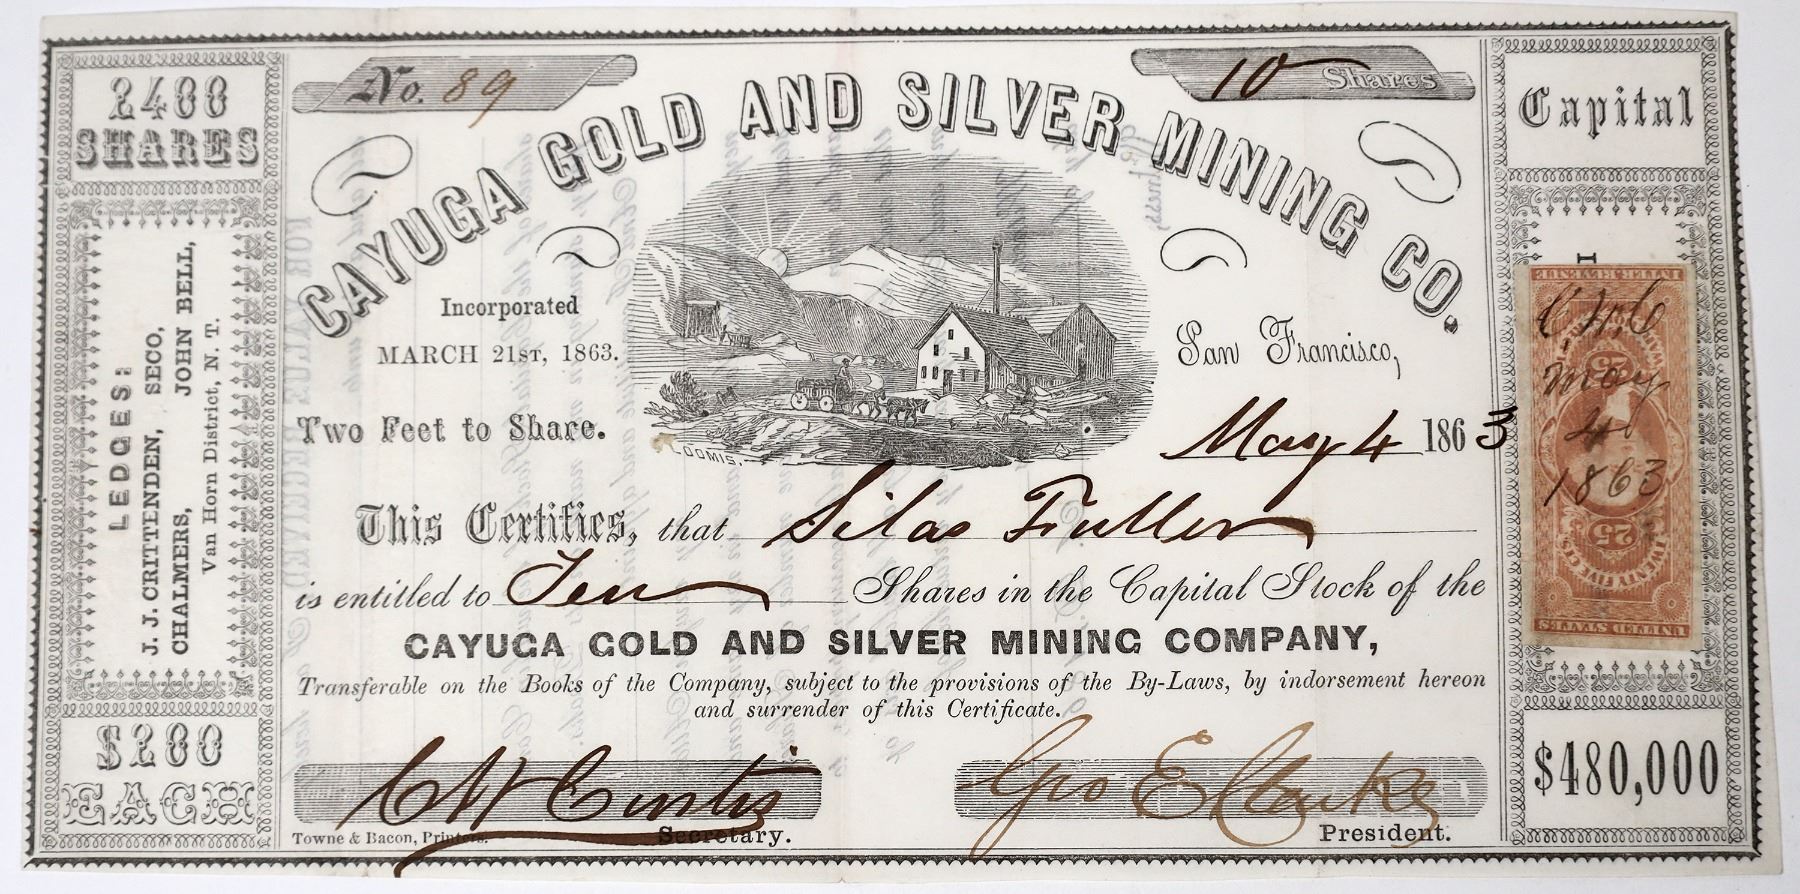 No. 89
10 Shares
CAYUGA GOLD AND SILVER MINING CO.
2400
SHARES
LEDGES:
J. J. CRITTENDEN, SECO,
CHALMERS, JOHN BELL,
Van Horn District, N. T.
$200
EACH
Incorporated
MARCH 21ST, 1863.
Two Feet to Share.
LOOMIS.
San Francisco,
May 4 1863
This Certifies, that Silas Fuller
is entitled to Ten Shares in the Capital Stock of the
CAYUGA GOLD AND SILVER MINING COMPANY,
Transferable on the Books of the Company, subject to the provisions of the By-Laws, by indorsement hereon
and surrender of this Certificate.
C W Curtis
Secretary.
Geo E Clarke
President.
Towne & Bacon, Printers.
Capital
$480,000
INTER. REVENUE
25
May
4
1863
25
TWENTY FIVE CTS.
UNITED STATES